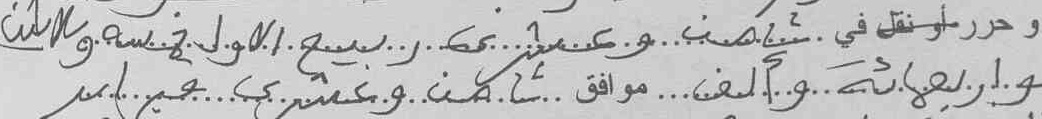 و حرر أو نقل في ثامن و عشري ربيع الاول خمسة و ثلاثين
و اربعمائة و ألف موافق ثامن و عشري